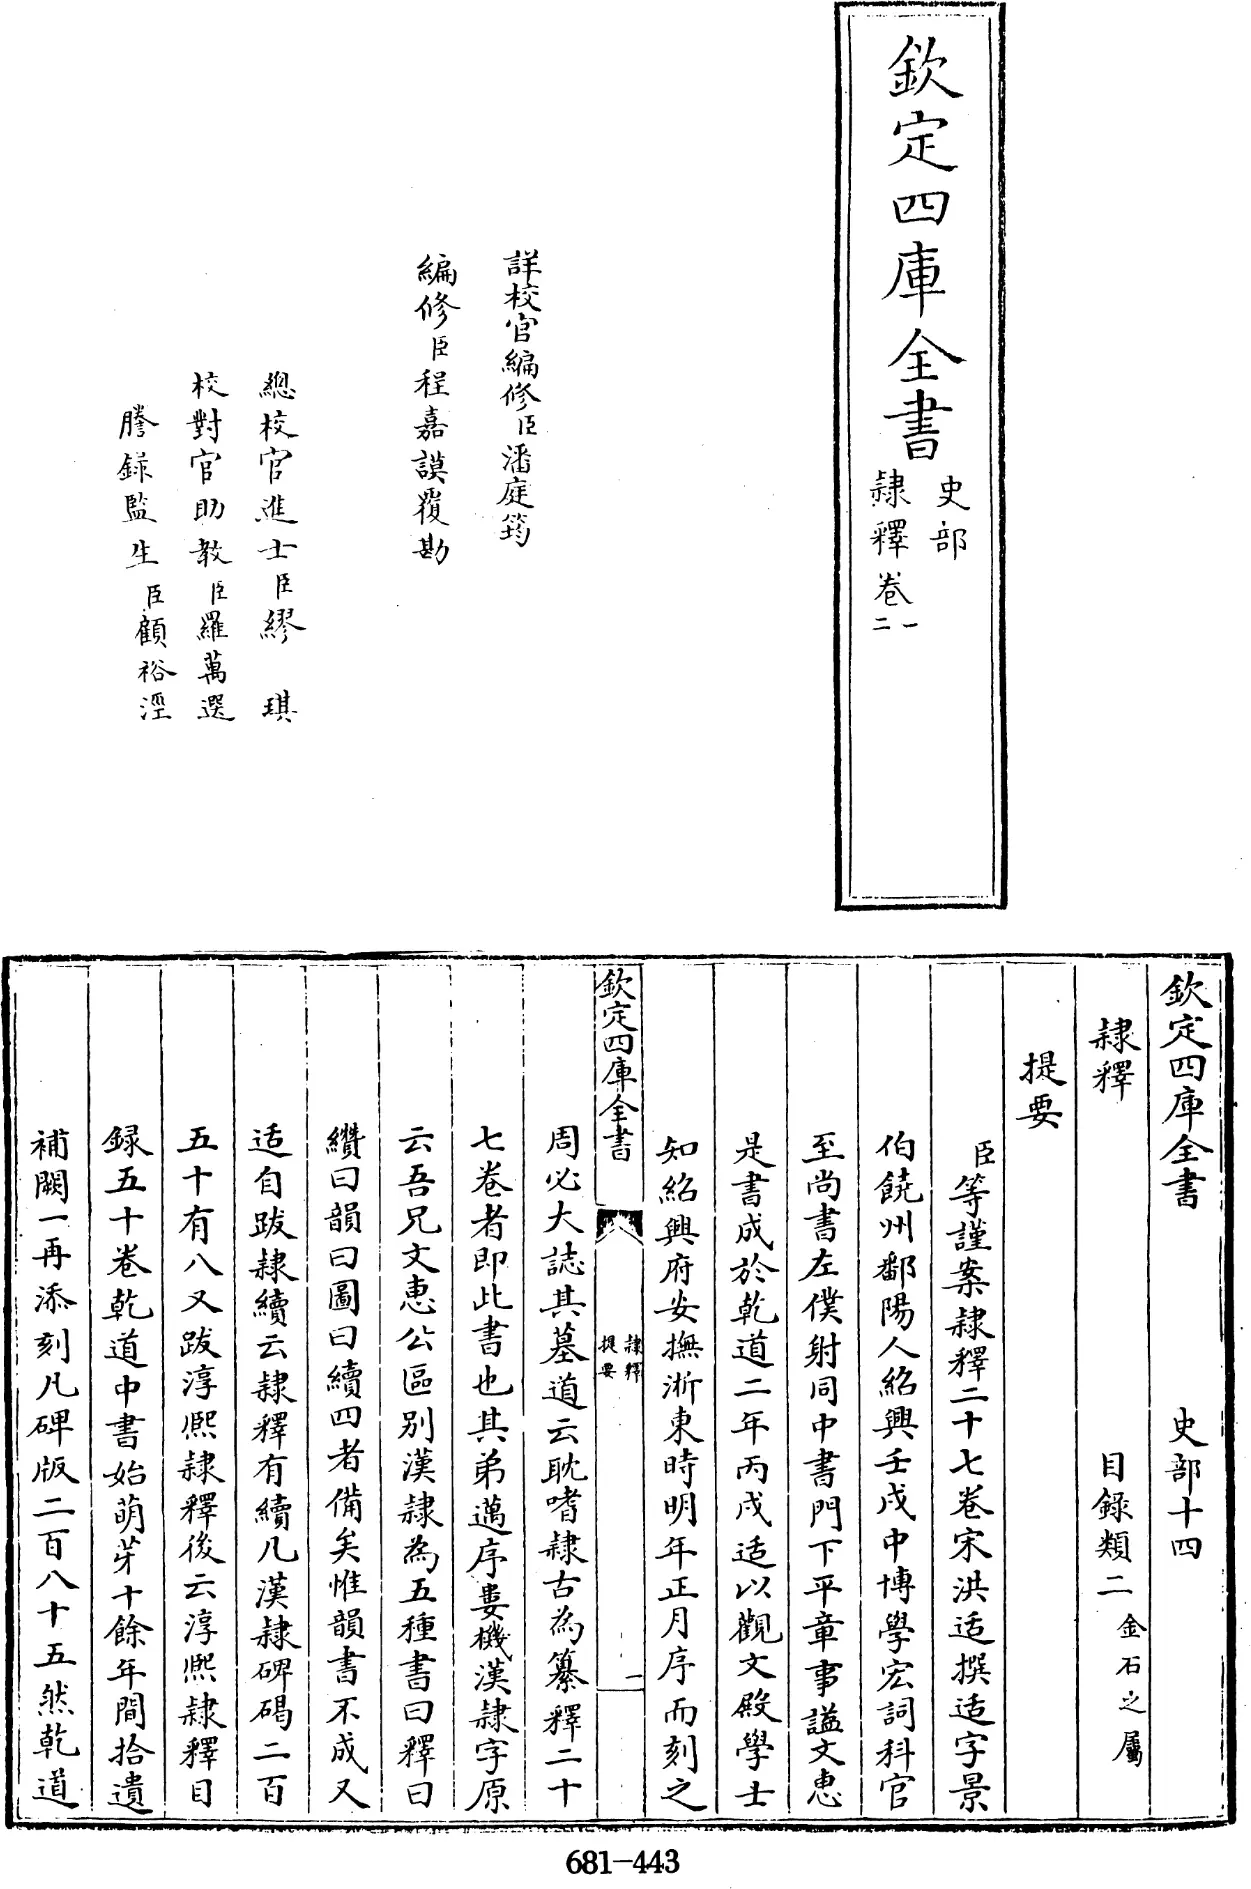 欽定四庫全書
史部
隸釋卷一
二
詳校官編修臣潘庭筠
編修臣程嘉謨覆勘
總校官進士臣繆琪
校對官助教臣羅萬選
謄錄監生臣顧裕涇
欽定四庫全書 史部十四
隸釋 目錄類二金石之屬
提要
臣等謹案隸釋二十七卷宋洪适撰适字景
伯饒州鄱陽人紹興壬戌中博學宏詞科官
至尚書左僕射同中書門下平章事謚文惠
是書成於乾道二年丙戌适以觀文殿學士
知紹興府安撫淛東時明年正月序而刻之
欽定四庫全書
隸釋
提要
一
周必大誌其墓道云耽嗜隸古為纂釋二十
七卷者即此書也其弟邁序婁機漢隸字原
云吾兄文惠公區別漢隸為五種書曰釋曰
纘曰韻曰圖曰續四者備矣惟韻書不成又
适自跋隸續云隸釋有續凡漢隸碑碣二百
五十有八又跋淳熙隸釋後云淳熙隸釋目
録五十卷乾道中書始萌芽十餘年間拾遺
補闕一再添刻凡碑版二百八十五然乾道
681-443